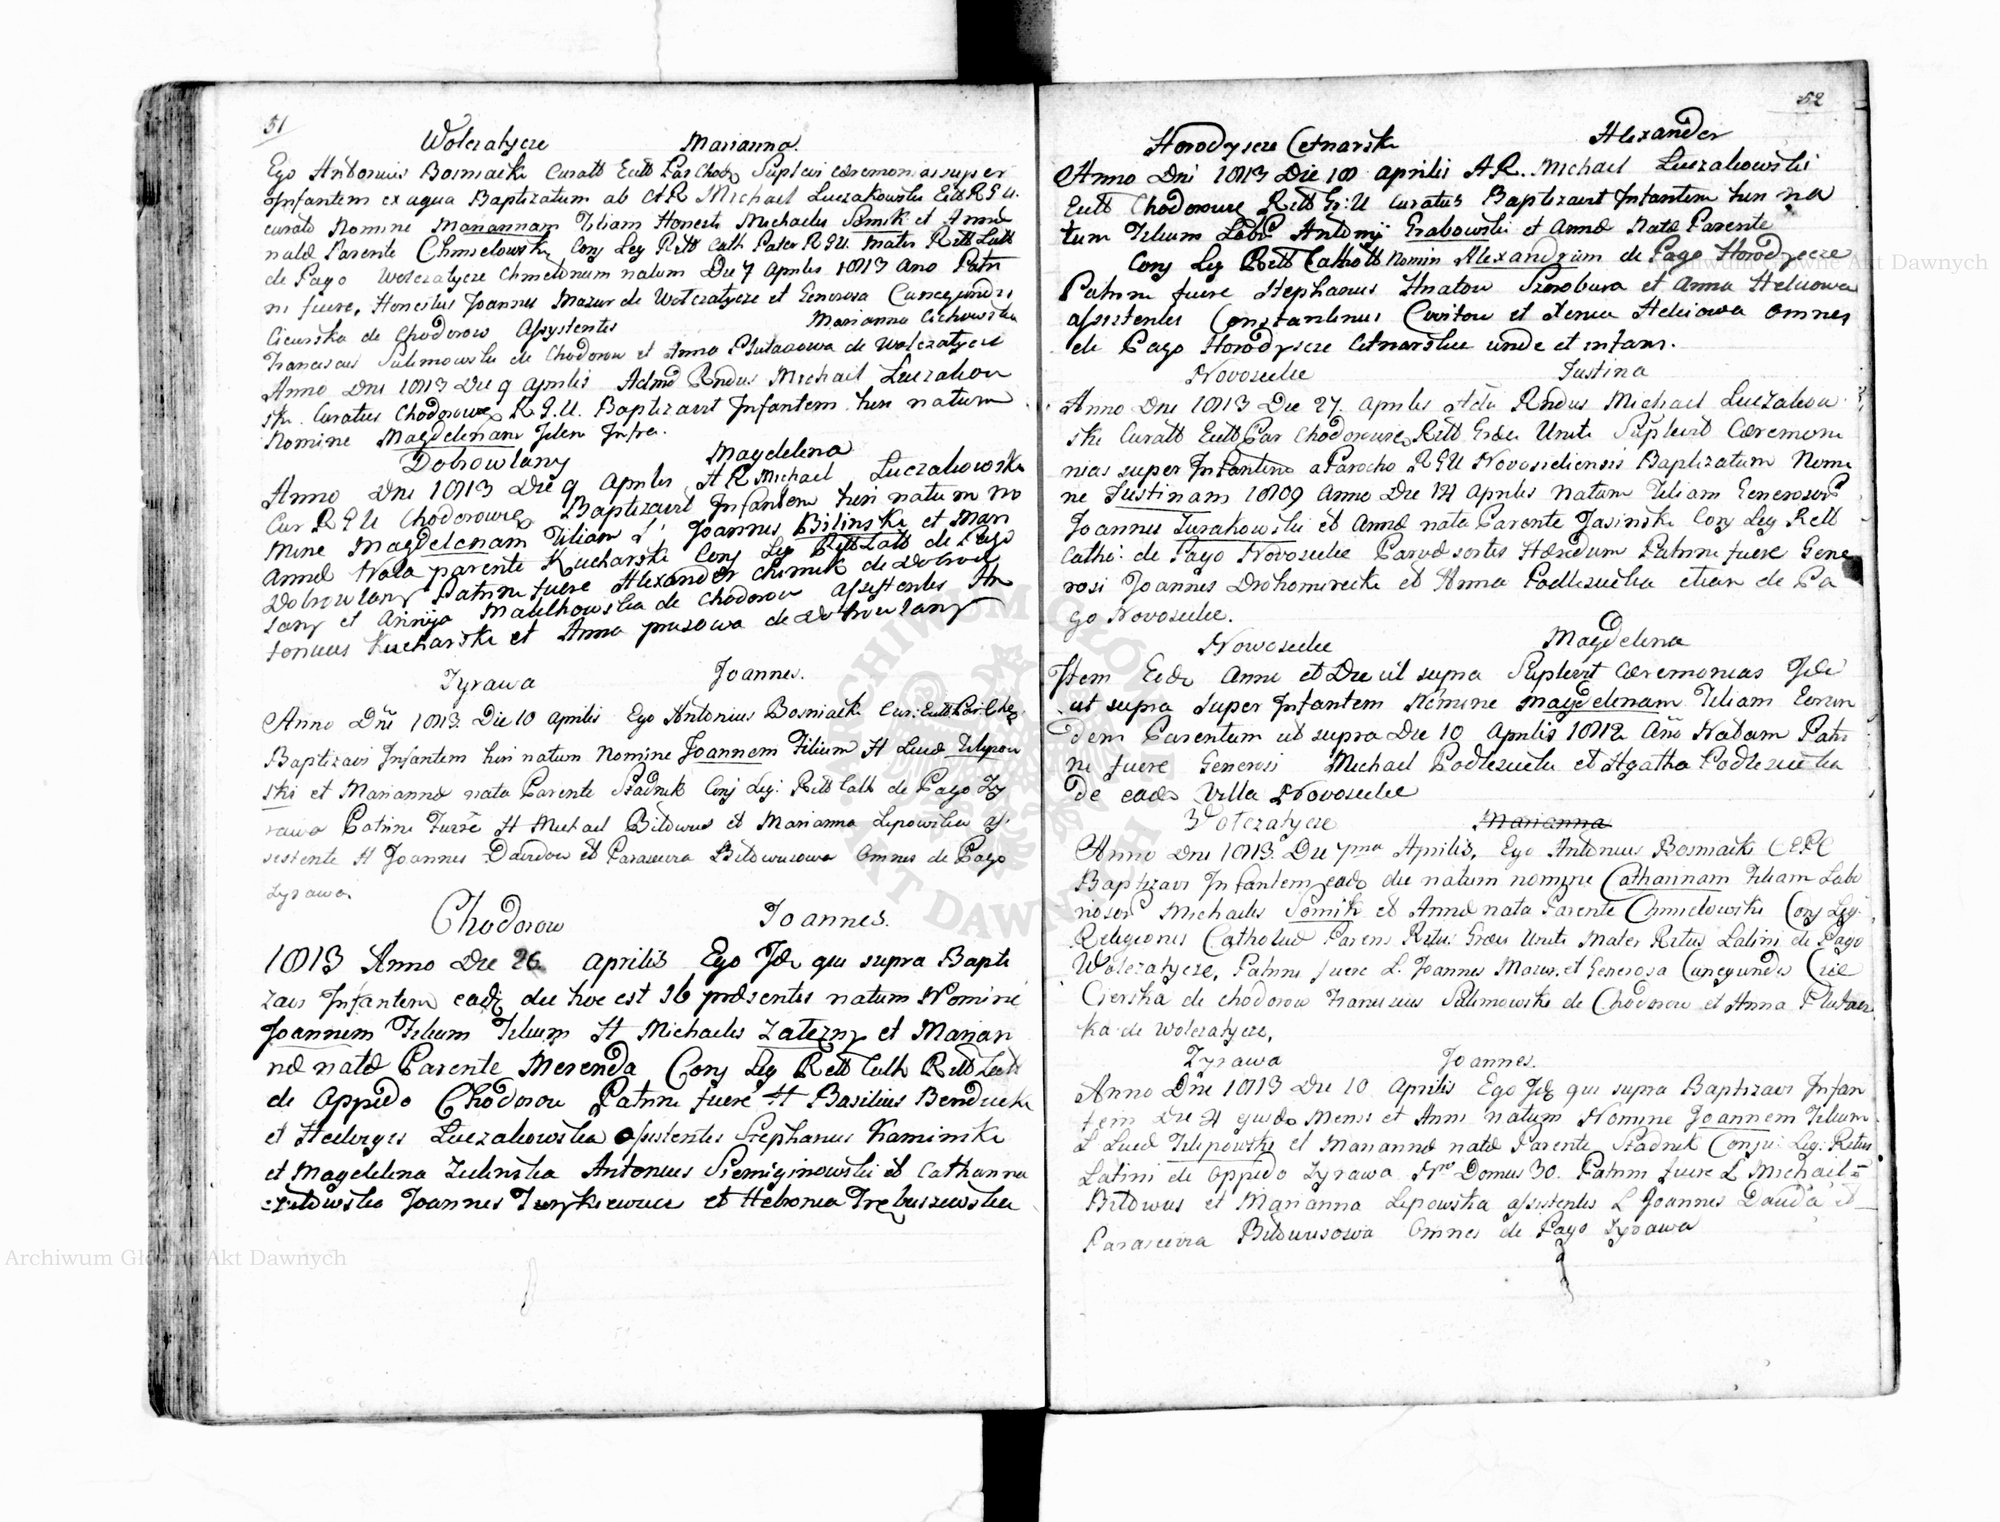 51
Wolczatycze Marianna.
Ego Antonius Bosniacki Curatt Eccl Par Chod Suplevi cæremonias super
Infantem ex aqua Baptizatum ab AR Michael Luczakowski Eccl R G U.
curato Nomine Mariannam Filiam Honesti Michaelis Somik et Annæ
natæ Parente Chmielowski Conj Leg Ritt Cath Pater R G U. Mater Ritt Latt
de Pago Wolczatycze natum Die 7 Aprilis 1813 Ano Patri
ni fuere, Honestus Joannes Mazur de Wolczatycze et Generosa Cunegundis
Ciewska de Chodorow Assystentes Marianna Cichowska
Franciscus Sulimowski de Chodorow et Anna de Wolczatycze
Anno Dni 1813 Die 9 Aprilis Admd Rndus Michail Luczakow
ski. Curatus Chodorowe R G. U. Baptizavit Infantem heri natum
Nomine Magdelenam Infra.
Dobrowlany Magdelena
Anno Dni 1813 Die 9 Aprilis A R Michael Luczakowski
Cur R G U Chodorowie Baptizavit Infantem heri natum No
mine Magdelenam Filiam L Joannes Bilinski et Mari
Annæ Nata parente Kucharski Conj Leg Ritt Latt de Pago
Dobrowlany Patrini fuere Alexander Chimik de Dobrow
lany et Anniya Malchowska de Chodorow assystentes An
tonius Kucharski et Anna prusowa de Dobrowlany
Zyrawa Joannes.
Anno Dni 1813. Die 10 Aprilis Ego Antonius Bosniacki Cur: Eccl Par: Chod
Baptizavi Infantem heri natum Nomine Joannem Filium H Lucæ Filipow
ski et Mariannæ nata Parente Stadnik Conj Leg: Ritt Cath de Pago Zy
rawa Patrini Fuere H Michael Bitowus et Marianna Lipowska as
sistente H Joannes Dawdow et Parascevia Bitowusowa Omnes de Pago
Zyrawa.
Chodorow Joannes.
1813 Anno Die 26 Aprilis Ego Id qui supra Bapti
zavi Infantem eadē die hoc est 26 præsentis natum Nomine
Joannem Filium Filium H Michaelis Zatezny et Marian
næ natæ Parente Merenda Conj Leg Ritt Cath Ritt Latt
de Oppido Chodorow Patrini fuere H Basilius Benducki
et Hedviges Luczakowska assistentes Stephanus Kaminski
et Magdelena Zulinska Antonius Siemiginowski et Catharina
Joannes Turzkiewicz et Hebronia Trębuszewska
52
Horodyscze Cetnarski Alexander
Anno Dni 1813 Die 18 Aprilis AR. Michael Luczakowski
Eccl Chodorowie Ritt Gr: U curatus Baptizavit Infantem heri na
tum Filium Labo Antonij Grabowski et Annæ Natæ Parente
Conj Leg Ritt Catholl Nomin Alexandrum de Pago Horodyscze
Patrini fuere Stephanus Hnatow et Anna Helwowa
assistentes Constantinus et Xenia Helciowa Omnes
de Pago Horodyscze Cetnarskie unde et infans.
Novosielce Justina
Anno Dni 1813 Die 27. Aprilis Adm Rndus Michael Luczakow
ski Curatt Eccl Par Chodorowie Ritt Græci Uniti Suplevit Cæremon
nias super Infantem a Parocho R G U Novosieliensis Baptizatum Nomi
ne Justinam 1809 Anno Die 14 Aprilis Natam Filiam Generosor
Joannis Turakowski et Annæ nata Parente Jasinski Conj Leg Ritt
Cathi: de Pago Novosielce Parvæ sortis Hæredum Patrini fuere Gene
rosi Joannes Drohomirecki et Anna Podlesiecka etiam de Pa
go Novosielce.
Nowosielce Magdelena
Item Eodē Anno et Die ut supra Suplevit Cæremonias Idē
ut supra Super Infantem Nomine Magdelenam Filiam Eorun
dem Parentum ut supra Die 10 Aprilis 1812 Ano Natam Patri
ni fuere Generosi Michael Podlesiecki et Agatha Podlesiecka
De eadē Villa Novosielce
Wolczatycze Marianna
Anno Dni 1813. Die 7ma Aprilis, Ego Antonius Bosniacki C E P C
Baptizavi Infantem eadē die natum nomine Catharinam Filiam Labo
riosor Michaelis Somik et Annæ nata Parente Chmielowski Conj Leg:
Religionis Catholicæ Parens Ritus Græci Uniti Mater Ritus Latini de Pago
Wolczatycze, Patrini fuere L. Joannes Mazur et Generosa Cunegundis Cie
Cierska de Chodorow Franciscus Sulimowski de Chodorow et Anna
ka de Wolczatycze,
Zyrawa Joannes.
Anno Dni 1813 Die 10 Aprilis Ego Idē qui supra Baptizavi Infan
tem Die 4 Mensi et Anni natum Nomine Joannem Filium
L Lucæ Filipowski et Mariannæ natæ Parente Stadnik Conju: Leg: Ritus
Latini de Oppido Zyrawa Nro Domus 30. Patrini fuere L Michael
Bitowus et Marianna Lipowska assistentes L Joannes Dauda et
Parascevia Bitowusowa Omnes de Pago Zyrawa
Archiwum Główne Akt Dawnych
Archiwum Główne Akt Dawnych
ARCHIWUM GŁÓWNE AKT DAWNYCH